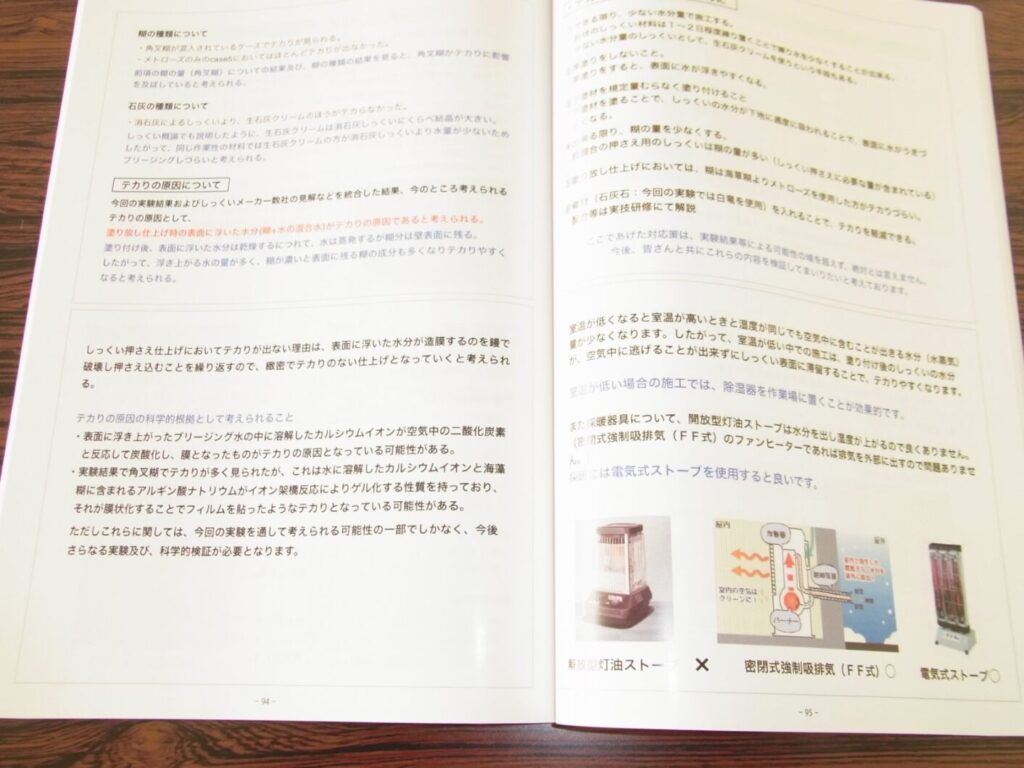 糊の種類について
・角叉糊が混入されているケースでテカリが見られる。
・メトローズのみのcase5においてはほとんどテカリが出なかった。
前項の糊の量（角叉糊）についての結果及び、糊の種類の結果を見ると、角叉糊がテカリに影響
を及ぼしていると考えられる。
石灰の種類について
・消石灰によるしっくいより、生石灰クリームのほうがテカらなかった。
しっくい概論でも説明したように、生石灰クリームは消石灰しっくいにくらべ結晶が大きい。
したがって、同じ作業性の材料では生石灰クリームの方が消石灰しっくいより水量が少ないため
ブリージングしづらいと考えられる。
テカリの原因について
今回の実験結果およびしっくいメーカー数社の見解などを統合した結果、今のところ考えられる
テカリの原因として、
塗り放し仕上げ時の表面に浮いた水分(糊+水の混合水)がテカリの原因であると考えられる。
塗り付け後、表面に浮いた水分は乾燥するにつれて、水は蒸発するが糊分は壁表面に残る。
したがって、浮き上がる水の量が多く、糊が濃いと表面に残る糊の成分も多くなりテカリやすく
なると考えられる。
しっくい押さえ仕上げにおいてテカリが出ない理由は、表面に浮いた水分が造膜するのを鏝で
破壊し押さえ込むことを繰り返すので、緻密でテカリのない仕上げとなっていくと考えられ
る。
テカリの原因の科学的根拠として考えられること
・表面に浮き上がったブリージング水の中に溶解したカルシウムイオンが空気中の二酸化炭素
と反応して炭酸化し、膜となったものがテカリの原因となっている可能性がある。
・実験結果で角叉糊でテカリが多く見られたが、これは水に溶解したカルシウムイオンと海藻
糊に含まれるアルギン酸ナトリウムがイオン架橋反応によりゲル化する性質を持っており、
それが膜状化することでフィルムを貼ったようなテカリとなっている可能性がある。
ただしこれらに関しては、今回の実験を通して考えられる可能性の一部でしかなく、今後
さらなる実験及び、科学的検証が必要となります。
- 94 -
きる限り、少ない水分量で施工する。
しっくい材料は１～２日程度練り置くことで練り水を少なくすることが出来る。
ない水分量のしっくいとして、生石灰クリームを使うという手段もある。
をしないこと。
をすると、表面に水が浮きやすくなる。
材を規定量むらなく塗り付けること
材を塗ることで、しっくいの水分が下地に適度に吸われることで、表面に水がうきづ
くなる。
る限り、糊の量を少なくする。
の押さえ用のしっくいは糊の量が多い（しっくい押さえに必要な量が含まれている）
放し仕上げにおいては、糊は海草糊よりメトローズを使用した方がテカリづらい。
（石灰石：今回の実験では白竜を使用）を入れることで、テカリを軽減できる。
等は実技研修にて解説
ここであげた対応策は、実験結果等による可能性の域を超えず、絶対とは言えません。
今後、皆さんと共にこれらの内容を検証してまいりたいと考えております。
室温が低くなると室温が高いときと湿度が同じでも空気中に含むことが出きる水分（水蒸気）
量が少なくなります。したがって、室温が低い中での施工は、塗り付け後のしっくいの水分
が、空気中に逃げることが出来ずにしっくい表面に滞留することで、テカりやすくなります。
室温が低い場合の施工では、除湿器を作業場に置くことが効果的です。
また採暖器具について、開放型灯油ストーブは水分を出し湿度が上がるので良くありません。
（密閉式強制吸排気（ＦＦ式）のファンヒーターであれば排気を外部に出すので問題ありませ
ん。
には電気式ストーブを使用すると良いです。
屋内
屋外
室内の空気は
クリーンに！
バーナー
開放型灯油ストーブ ×
密閉式強制吸排気（ＦＦ式）○
電気式ストーブ○
- 95 -